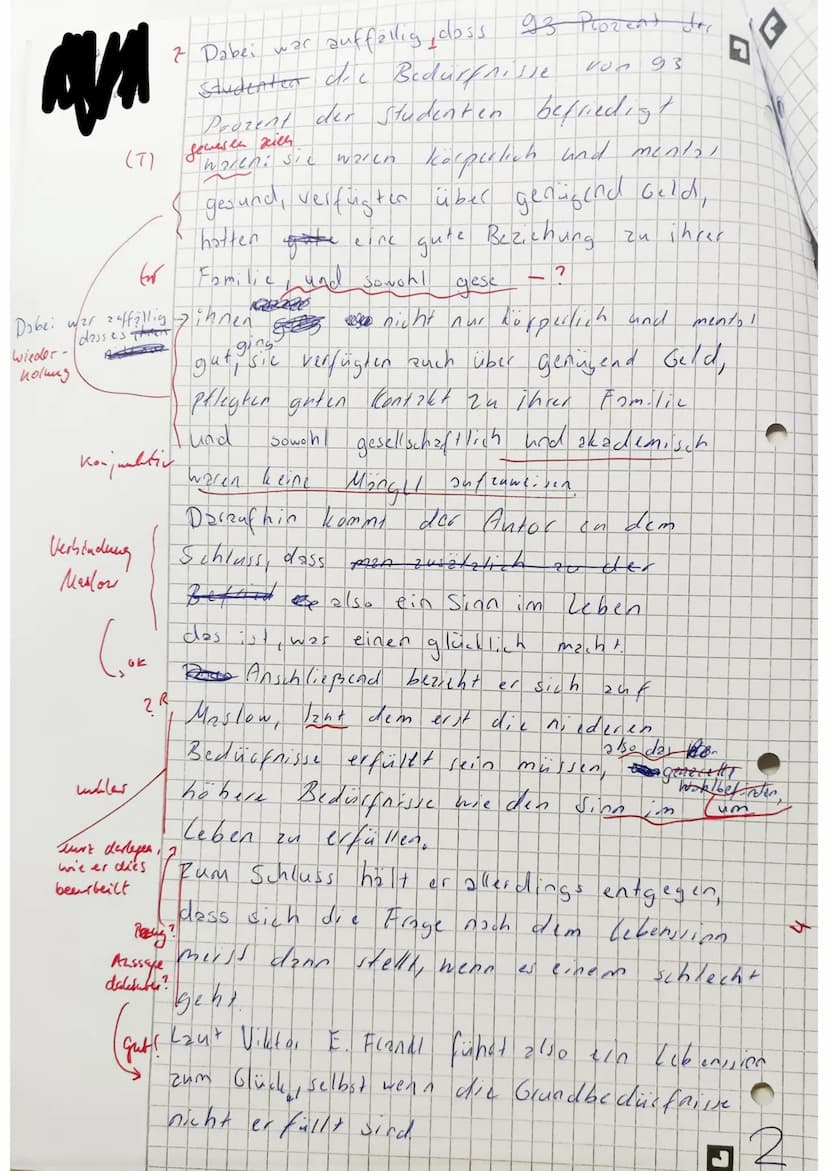 ? Dabei war auffällig, dass 93 Prozent der
Studenten die Bedürfnisse von 93
Prozent der Studenten befriedigt
gewesen seien
(T) waren: sie waren körperlich und mental
gesund, verfügten über genügend Geld,
hatten gute eine gute Beziehung zu ihrer
Gr Familie, und sowohl gese – ?
Dabei war auffällig
dass es ihnen
wieder-
holung
ihnen nicht nur körperlich und mental
gut ging, sie verfügten auch über genügend Geld,
pflegten guten Kontakt zu ihrer Familie
und sowohl gesellschaftlich und akademisch
Konjunktiv
waren keine Mängel aufzuweisen.
Daraufhin kommt der Autor zu dem
Verbindung
Maslow
Schluss, dass man zusätzlich zu der
Befried also ein Sinn im Leben
das ist, was einen glücklich macht.
ok
Anschließend bezieht er sich auf
? R
Maslow, laut dem erst die niederen
also das
Bedürfnisse erfüllt sein müssen, generelle
Wohlbefinden,
unklar
höhere Bedürfnisse wie den Sinn im um
Leben zu erfüllen.
kurz darlegen,
wie er dies
beurteilt
?
Zum Schluss hält er allerdings entgegen,
dass sich die Frage nach dem Lebenssinn
Bezug?
Aussage
dahinter?
meist dann stellt, wenn es einem schlecht
geht.
gut!
Laut Viktor E. Frankl führt also ein Lebenssinn
zum Glück, selbst wenn die Grundbedürfnisse
nicht erfüllt sind.
2